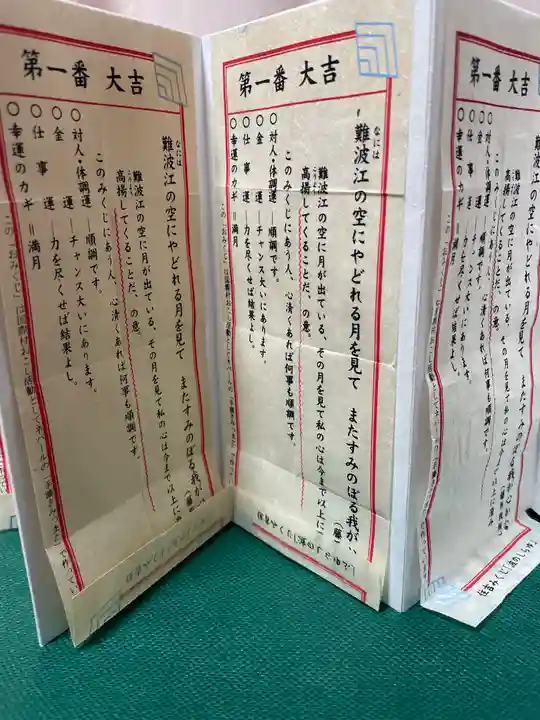 第一番 大吉
難波江の空にやどれる月を見て
難波江の空に月が出ている、その月を見て私の心は今まで以上に
高揚してくることだ、の意。
このみくじにあう人、心清くあれば何事も順調です。
○対人・体調運―順調です。
○金運―チャンス大いにあります。
○仕事運―力を尽くせば結果よし。
○幸運のカギ=満月
第一番 大吉
なには
難波江の空にやどれる月を見て またすみのぼる我が
難波江の空に月が出ている、その月を見て私の心は今まで以上に
高揚してくることだ、の意。
このみくじにあう人、心清くあれば何事も順調です。
○対人・体調運―順調です。
○金運―チャンス大いにあります。
○仕事運―力を尽くせば結果よし。
○幸運のカギ=満月
第一番 大吉
難波江の空にやどれる月を見て またすみのぼる我が心かな
難波江の空に月が出ている、その月を見て私の心は今まで以上に
高揚してくることだ、の意。
このみくじにあう人、心清くあれば何事も順調です。
○対人・体調運―順調です。
○金運―チャンス大いにあります。
○仕事運―力を尽くせば結果よし。
○幸運のカギ=満月
住吉みくじ